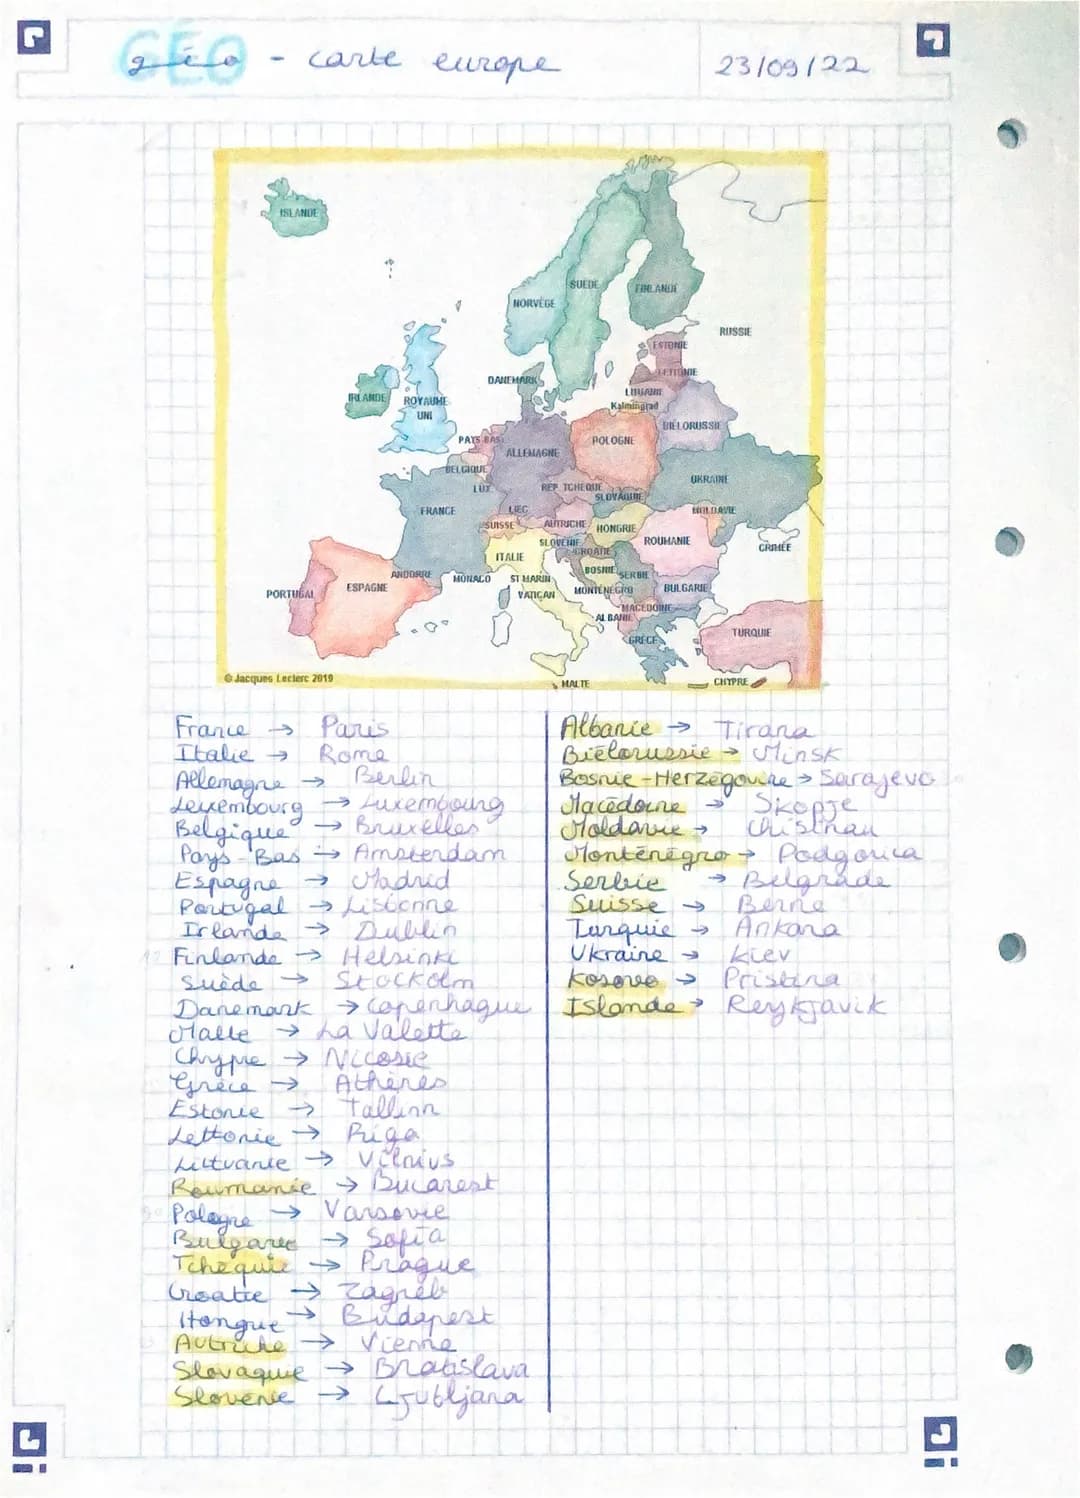 géo - carte europe
23/09/22
ISLANDE
SUÈDE
FINLANDE
NORVÈGE
RUSSIE
ESTONIE
LETTONIE
DANEMARK
LITUANIE
IRLANDE
ROYAUME
UNI
Kaliningrad
BIÉLORUSSIE
PAYS-BAS
POLOGNE
ALLEMAGNE
BELGIQUE
UKRAINE
LUX.
RÉP. TCHÈQUE
SLOVAQUIE
FRANCE
LIEC
MOLDAVIE
SUISSE
AUTRICHE
HONGRIE
ROUMANIE
SLOVÉNIE
CROATIE
CRIMÉE
ITALIE
BOSNIE
SERBIE
ANDORRE
MONACO
ST MARIN
ESPAGNE
MONTÉNÉGRO
BULGARIE
PORTUGAL
VATICAN
MACÉDOINE
ALBANIE
TURQUIE
GRÈCE
© Jacques Leclerc 2019
MALTE
CHYPRE
France → Paris
Italie → Rome
Allemagne → Berlin
Luxembourg → Luxembourg
Belgique → Bruxelles
Pays-Bas → Amsterdam
Espagne → Madrid
Portugal → Lisbonne
Irlande → Dublin
Finlande → Helsinki
Suède → Stockolm
Danemark → Copenhague
Malte → La Valette
Chypre → Nicosie
Grèce → Athènes
Estonie → Tallinn
Lettonie → Riga
Lituanie → Vilnius
Roumanie → Bucarest
Pologne → Varsovie
Bulgarie → Sofia
Tchéquie → Prague
Croatie → Zagreb
Hongrie → Budapest
Autriche → Vienne
Slovaquie → Bratislava
Slovénie → Ljubljana
Albanie → Tirana
Biélorussie → Minsk
Bosnie-Herzégovine → Sarajevo
Macédoine → Skopje
Moldavie → Chisinau
Monténégro → Podgorica
Serbie → Belgrade
Suisse → Berne
Turquie → Ankara
Ukraine → Kiev
Kosovo → Pristina
Islande → Reykjavik